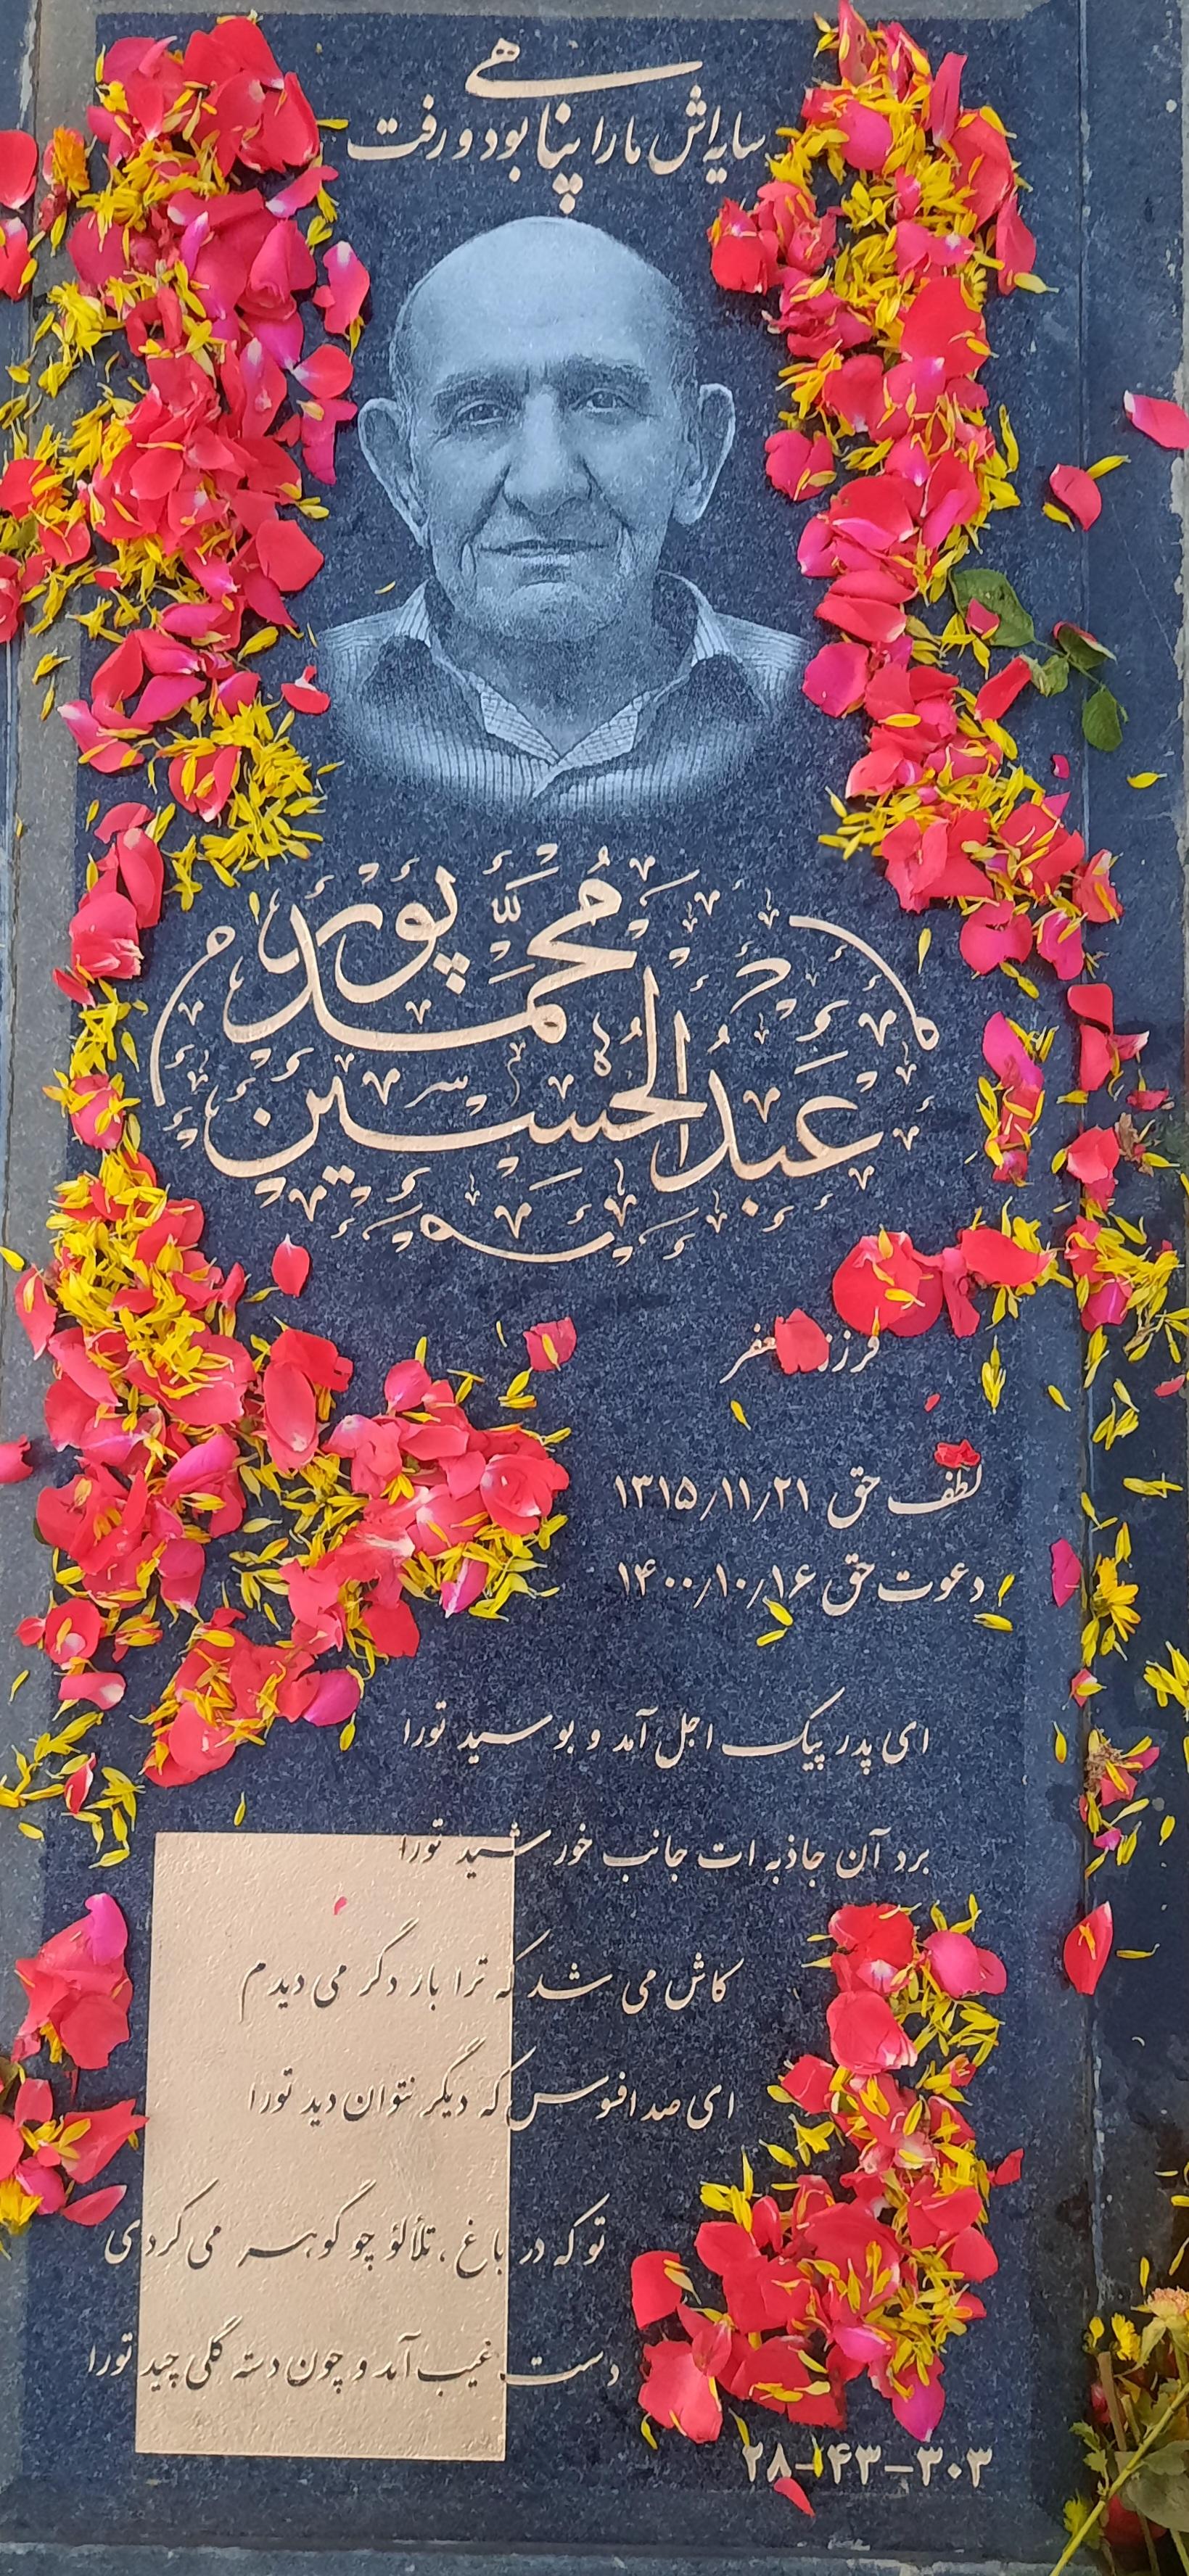 سایه‌اش ما را پناهی بود و رفت
محمد پور
عبدالحسین
فرزند جعفر
لطف حق ۱۳۱۵/۱۱/۲۱
دعوت حق ۱۴۰۰/۱۰/۱۶
ای پدر پیک اجل آمد و بوسید تورا
برد آن جاذبه ات جانب خورشید تورا
کاش می شد که ترا بار دگر می دیدم
ای صد افسوس که دیگر نتوان دید تورا
تو که در باغ، تلألؤ چو گوهر می کردی
دست غیب آمد و چون دسته گلی چید تورا
۲۸-۴۳-۳۰۳